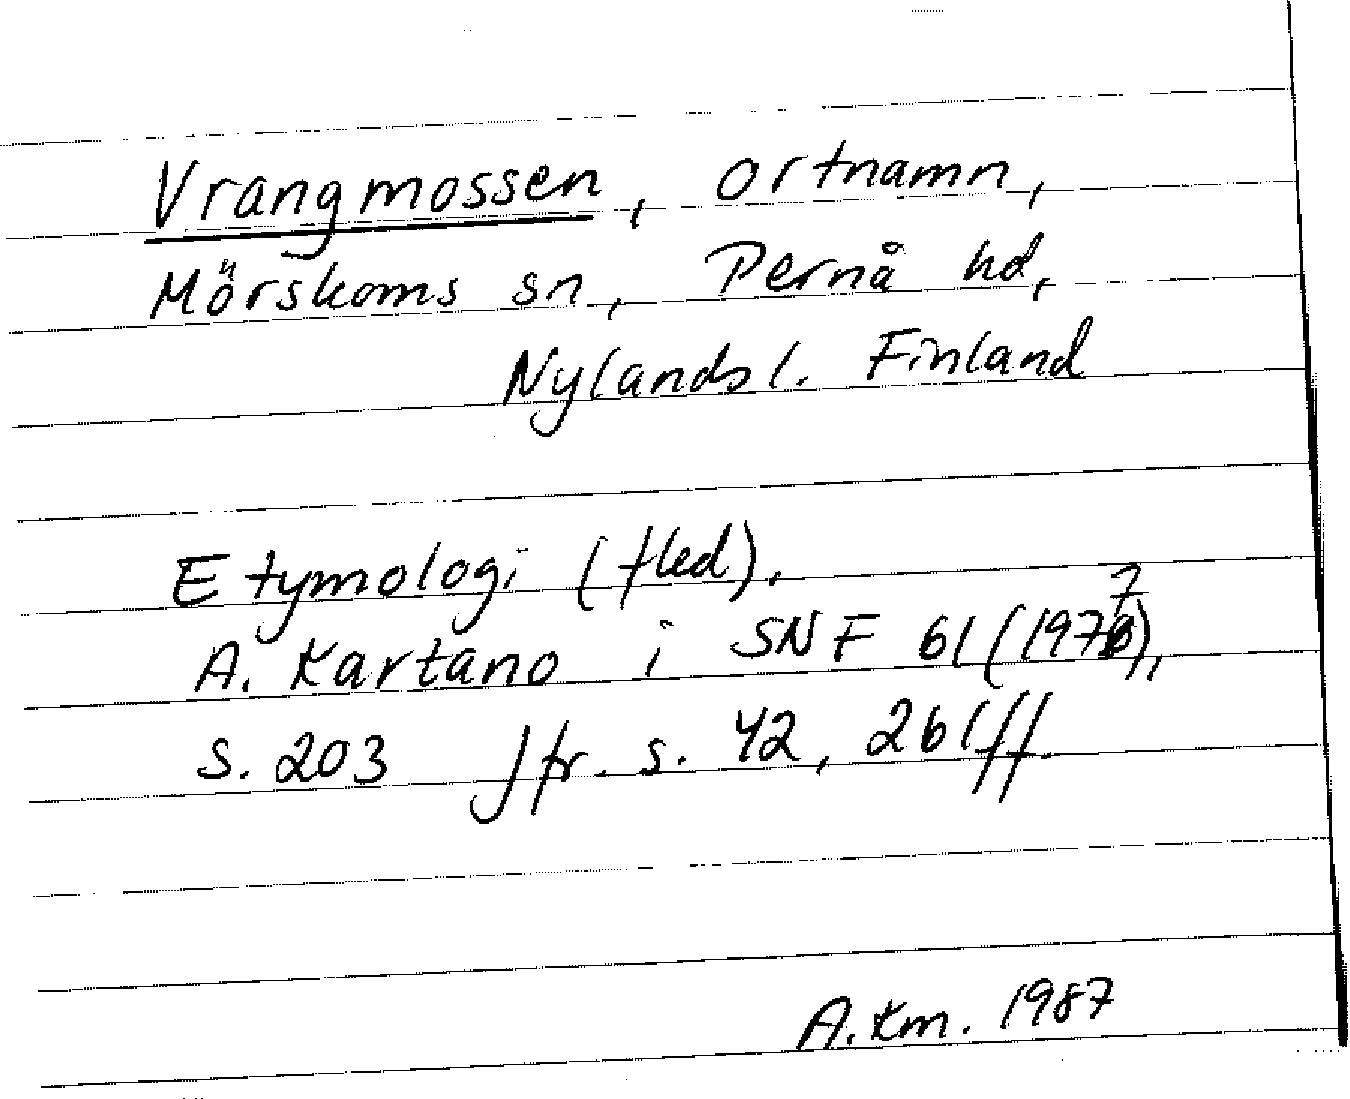 Vrangmossen, ortnamn,
Mörskoms sn, Pernå hd,
Nylands l. Finland
Etymologi (fled).
A. Kartano i SNF 61 (1977),
s. 203 Jfr. s. 42, 261ff.
A. Km. 1987